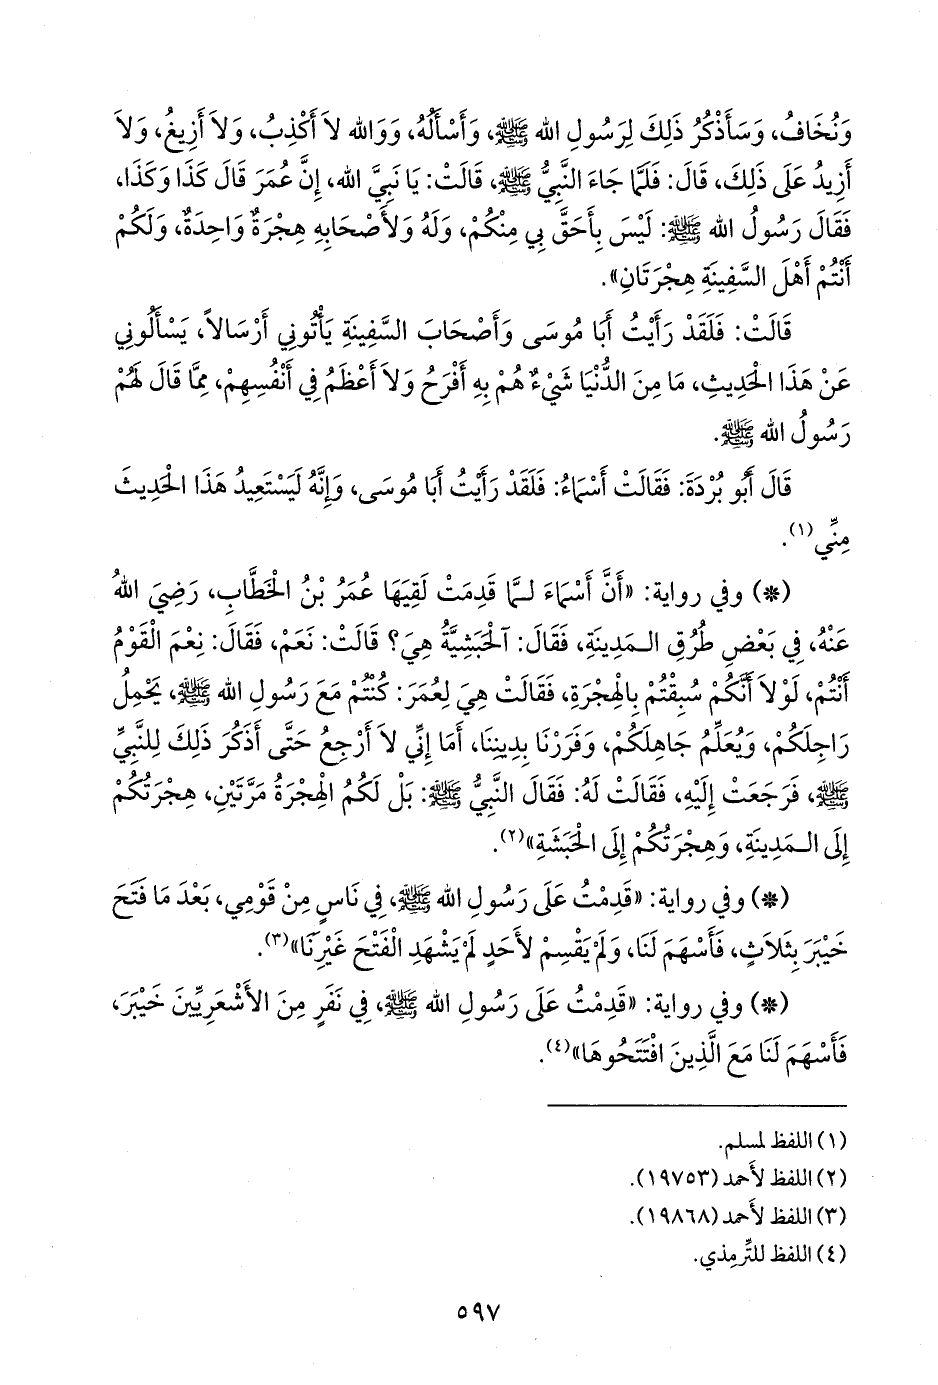 وَنُخَافُ، وَسَأَذْكُرُ ذَلِكَ لِرَسُولِ الله ﷺ، وَأَسْأَلُهُ، وَوَالله لاَ أَكْذِبُ، وَلاَ أَزِيغُ، وَلاَ
أَزِيدُ عَلَى ذَلِكَ، قَالَ: فَلَمَّا جَاءَ النَّبِيُّ ﷺ، قَالَتْ: يَا نَبِيَّ الله، إِنَّ عُمَرَ قَالَ كَذَا وَكَذَا،
فَقَالَ رَسُولُ الله ﷺ: لَيْسَ بِأَحَقَّ بِي مِنْكُمْ، وَلَهُ وَلأَصْحَابِهِ هِجْرَةٌ وَاحِدَةٌ، وَلَكُمْ
أَنْتُمْ أَهْلَ السَّفِينَةِ هِجْرَتَانِ».
قَالَتْ: فَلَقَدْ رَأَيْتُ أَبَا مُوسَى وَأَصْحَابَ السَّفِينَةِ يَأْتُونِي أَرْسَالاً، يَسْأَلُونِي
عَنْ هَذَا الْحَدِيثِ، مَا مِنَ الدُّنْيَا شَيْءٌ هُمْ بِهِ أَفْرَحُ وَلاَ أَعْظَمُ فِي أَنْفُسِهِمْ، مِمَّا قَالَ لَهُمْ
رَسُولُ الله ﷺ.
قَالَ أَبُو بُرْدَةَ: فَقَالَتْ أَسْمَاءُ: فَلَقَدْ رَأَيْتُ أَبَا مُوسَى، وَإِنَّهُ لَيَسْتَعِيدُ هَذَا الْحَدِيثَ
مِنِّي(١).
(*) وفي رواية: «أَنَّ أَسْمَاءَ لَـمَّا قَدِمَتْ لَقِيَهَا عُمَرُ بْنُ الْخَطَّابِ، رَضِيَ اللهُ
عَنْهُ، فِي بَعْضِ طُرُقِ الـمَدِينَةِ، فَقَالَ: آلْحَبَشِيَّةُ هِيَ؟ قَالَتْ: نَعَمْ، فَقَالَ: نِعْمَ الْقَوْمُ
أَنْتُمْ، لَوْلاَ أَنَّكُمْ سُبِقْتُمْ بِالْهِجْرَةِ، فَقَالَتْ هِيَ لِعُمَرَ: كُنْتُمْ مَعَ رَسُولِ الله ﷺ، يَحْمِلُ
رَاجِلَكُمْ، وَيُعَلِّمُ جَاهِلَكُمْ، وَفَرَرْنَا بِدِينِنَا، أَمَا إِنِّي لاَ أَرْجِعُ حَتَّى أَذْكُرَ ذَلِكَ لِلنَّبِيِّ
ﷺ، فَرَجَعَتْ إِلَيْهِ، فَقَالَتْ لَهُ: فَقَالَ النَّبِيُّ ﷺ: بَلْ لَكُمُ الْهِجْرَةُ مَرَّتَيْنِ، هِجْرَتُكُمْ
إِلَى الـمَدِينَةِ، وَهِجْرَتُكُمْ إِلَى الْحَبَشَةِ»(٢).
(*) وفي رواية: «قَدِمْتُ عَلَى رَسُولِ الله ﷺ، فِي نَاسٍ مِنْ قَوْمِي، بَعْدَ مَا فَتَحَ
خَيْبَرَ بِثَلاَثٍ، فَأَسْهَمَ لَنَا، وَلَمْ يَقْسِمْ لأَحَدٍ لَمْ يَشْهَدِ الْفَتْحَ غَيْرَنَا»(٣).
(*) وفي رواية: «قَدِمْتُ عَلَى رَسُولِ الله ﷺ، فِي نَفَرٍ مِنَ الأَشْعَرِيِّينَ خَيْبَرَ،
فَأَسْهَمَ لَنَا مَعَ الَّذِينَ افْتَتَحُوهَا»(٤).
(١) اللفظ لمسلم.
(٢) اللفظ لأحمد (١٩٧٥٣).
(٣) اللفظ لأحمد (١٩٨٦٨).
(٤) اللفظ للتِّرمِذي.
٥٩٧